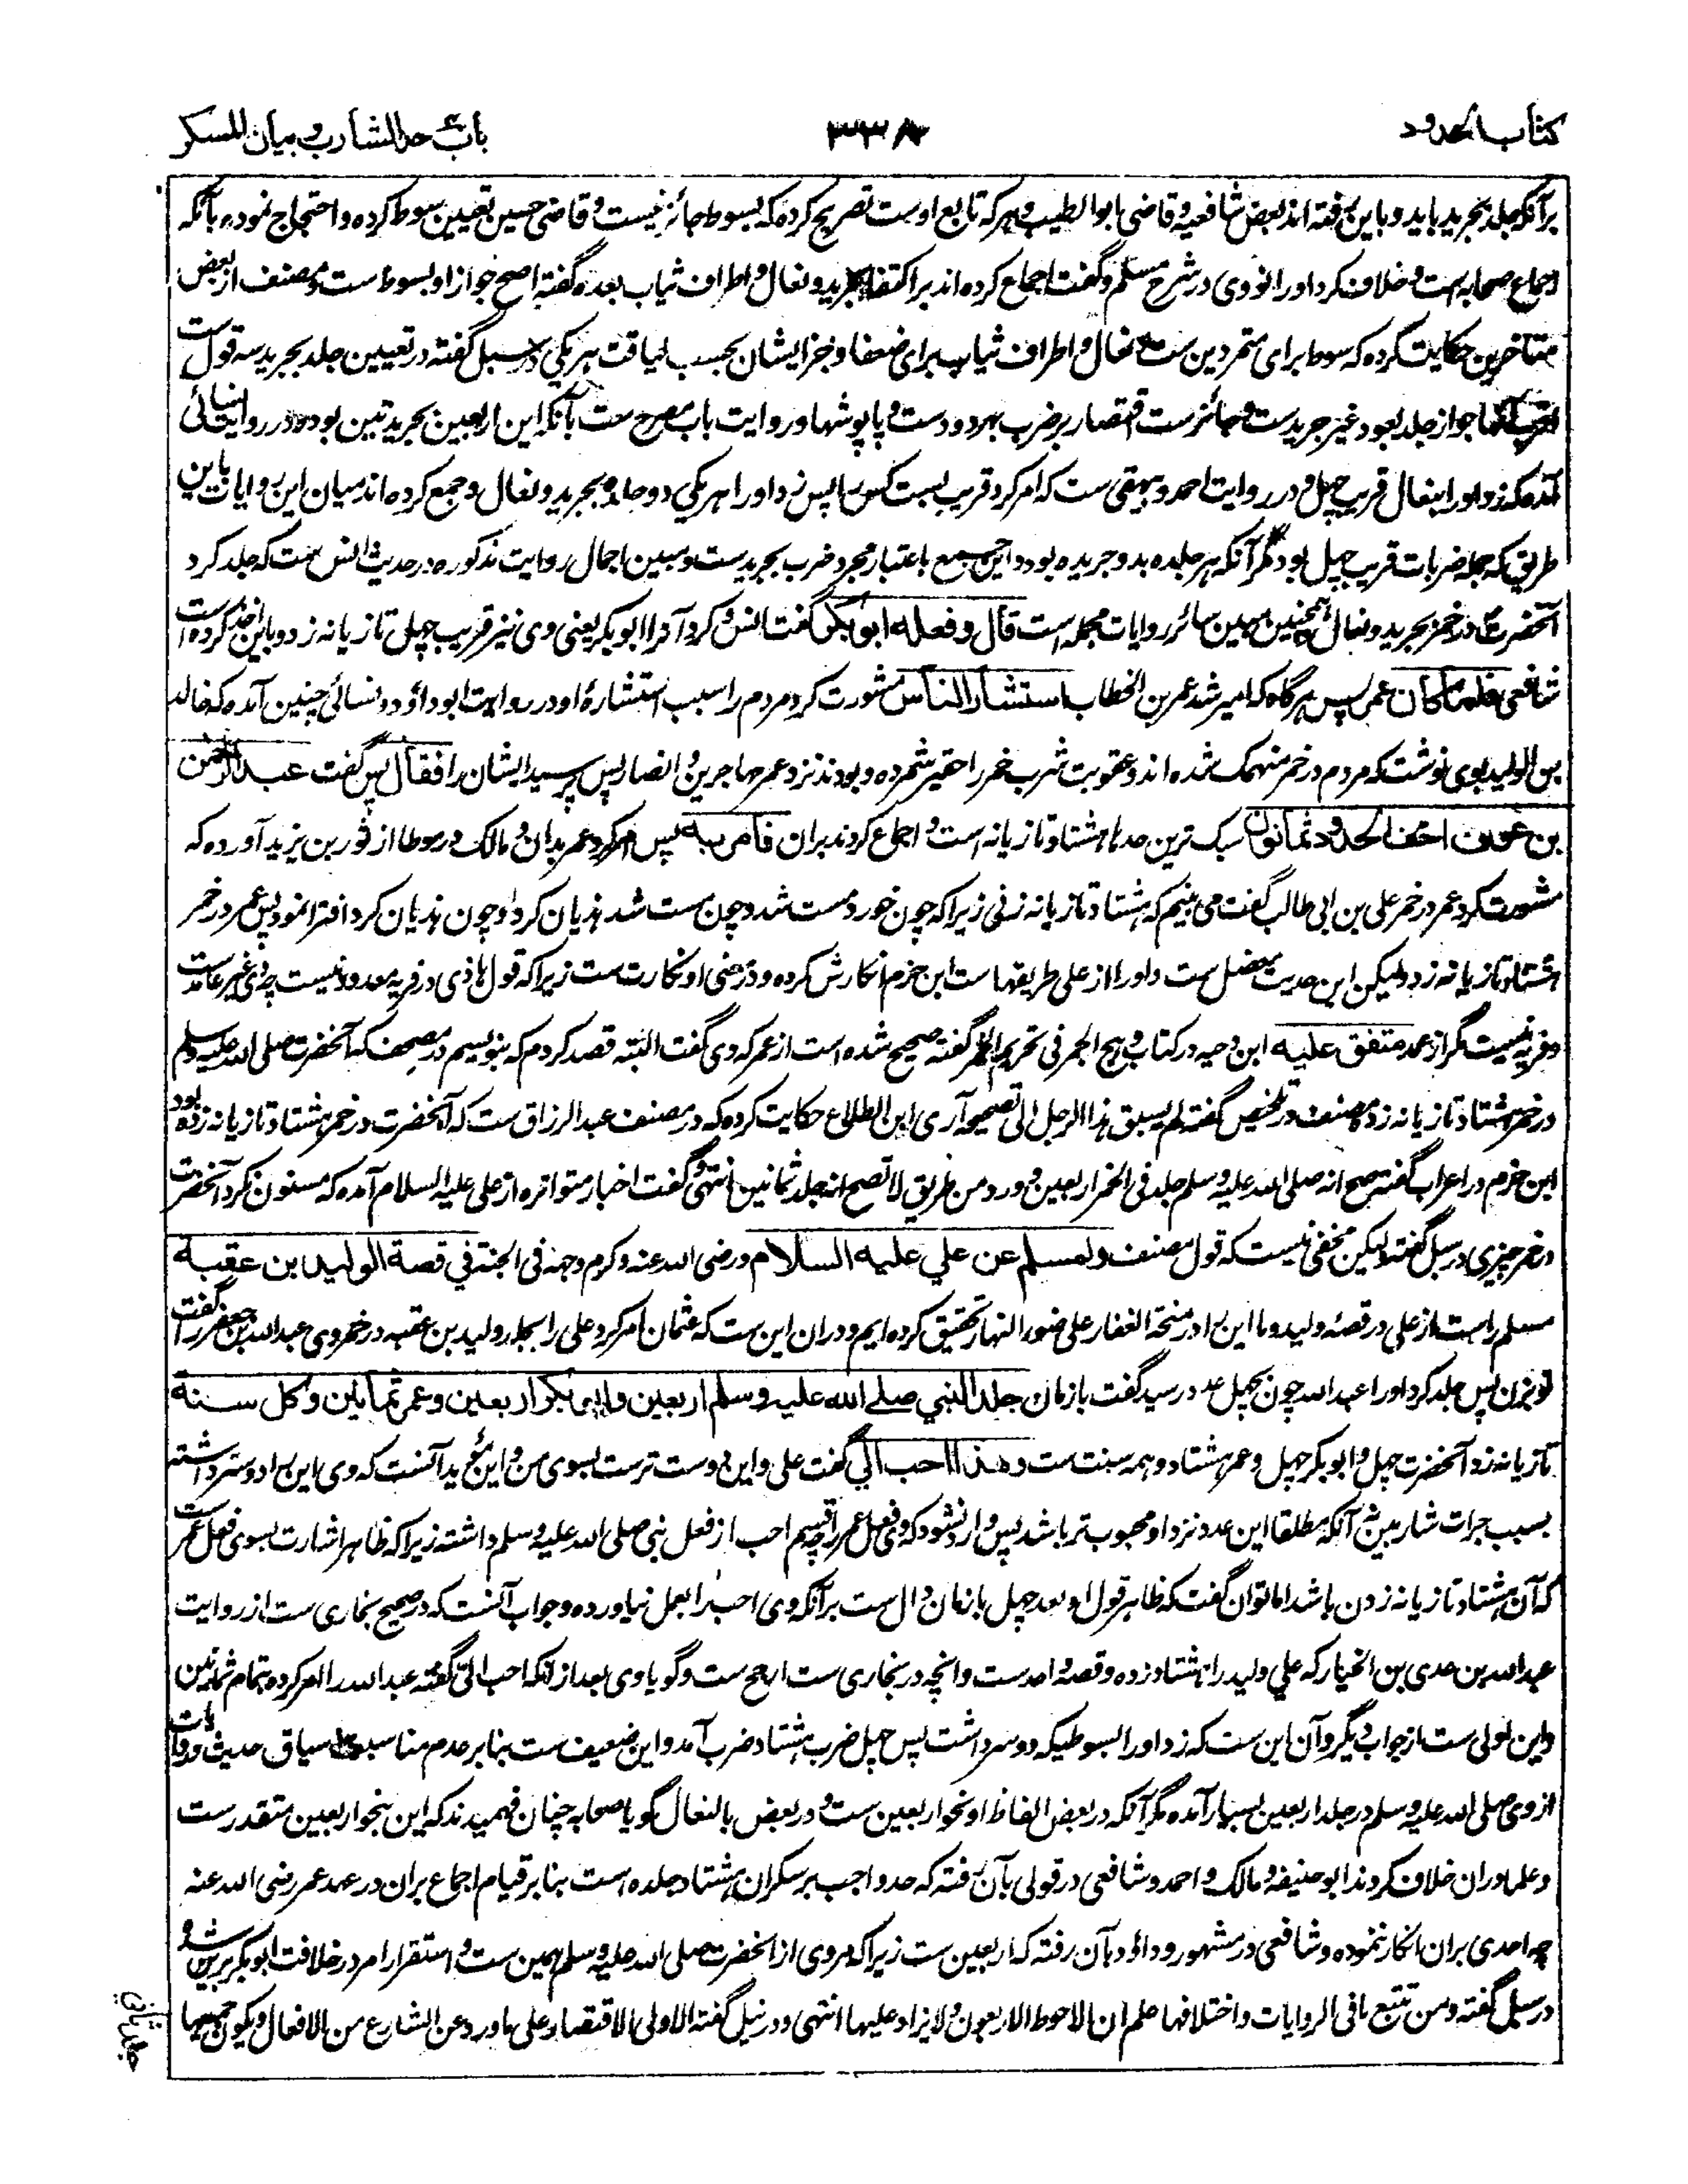 کتاب الحدود
۳۳۸
باب حد الشارب و بیان المسکر
برآنکه جلد بجرید باید و باین رفته اند بعض شافعیه و قاضی ابو الطیب و هر که تابع اوست تصریح کرده که بسوط جائز نیست و قاضی حسین تعیین سوط کرده و احتجاج نموده بآنکه
اجماع صحابه است و خلاف کرد او را نووی در شرح مسلم و گفت اجماع کرده اند بر اکتفا بجرید و نعال و اطراف ثیاب بعده گفته اصح جواز او بسوط ست و مصنف از بعض
متاخرین حکایت کرده که سوط برای متمردین ست و نعال و اطراف ثیاب برای ضعفا و جز ایشان بحسب لیاقت هر یکی در سبل گفته در تعیین جلد بجرید سه قول ست
جواز جلد بعود غیر جرید ست و جائز ست اقتصار بر ضرب بهر دو دست و پاپوشها و روایت باب مصرح ست بآنکه این اربعین بجریدتین بوده در روایت نسائی
آمده که زد او را بنعال قریب چهل و در روایت احمد و بیهقی ست که امر کرد قریب بست کس را پس زد او را هر یکی دو جلده بجرید و نعال و جمع کرده اند میان این روایات باین
طریق که جمله ضربات قریب چهل بود مگر آنکه هر جلده بدو جریده بود و این جمیع باعتبار مجرد ضرب بجرید ست و مبین اجمال روایت مذکوره در حدیث انس ست که جلد کرد
آنحضرت در خمر بجرید و نعال همچنین مبین سائر روایات مجمله است قال و فعله ابو بکر گفت انس و کرد آنرا ابو بکر یعنی وی نیز قریب چهل تازیانه زد و باین اخذ کرده است
شافعی فلما کان عمر پس هرگاه که امیر شد عمر بن الخطاب استشار الناس مشورت کرد مردم را سبب استشاره او در روایت ابو داؤد و نسائی چنین آمده که خالد
بن الولید بوی نوشت که مردم در خمر منهمک شده اند و عقوبت شرب خمر را حقیر شمرده و بودند نزد عمر مهاجرین و انصار پس پرسید ایشان را فقال پس گفت عبد الرحمن
بن عوف اخف الحدود ثمانون سبک ترین حدها هشتاد تازیانه است و اجماع کردند بران فامر به پس امر کرد عمر بدان و مالک در موطا از ثور بن یزید آورده که
مشورت کرد عمر در خمر علی بن ابی طالب گفت می بینم که هشتاد تازیانه زنی زیرا که چون خورد مست شد و چون مست شد هذیان کرد و چون هذیان کرد افترا نمود پس عمر در خمر
هشتاد تازیانه زد و لیکن این حدیث معضل ست و او را از علی طریقها ست ابن حزم انکارش کرده و در معنی او نکارت ست زیرا که قول هاذی در فریه معدود نیست چه وی غیر عامد ست
و فریه نیست مگر از عمد متفق علیه ابن دحیه در کتاب وهج الجمر فی تحریم الخمر گفته صحیح شده است از عمر که وی گفت البته قصد کردم که بنویسم در مصحف که آنحضرت صلی الله علیه وسلم
در خمر هشتاد تازیانه زد مصنف در تلخیص گفته لم یسبق هذا الرجل الی تصحیحه آری ابن الطلاع حکایت کرده که در مصنف عبد الرزاق ست که آنحضرت در خمر هشتاد تازیانه زده بود
ابن حزم در اعراب گفته صح انه صلی الله علیه وسلم جلد فی الخمر اربعین و ورد من طریق لا تصح انه جلد ثمانین انتهی و گفت اخبار متواتره از علی علیه السلام آمده که مسنون نکرد آنحضرت
در خمر چیزی در سبل گفته و لیکن مخفی نیست که قول مصنف ولمسلم عن علي علیه السلام و رضی الله عنه و کرم وجهه فی الجنة في قصة الولید بن عقبة
مسلم راست از علی در قصۀ ولید و ما این را در منحة الغفار علی ضوء النهار تحقیق کرده ایم و دران این ست که عثمان امر کرد علی را بجلد ولید بن عقبه در خمر وی عبد الله بن جعفر را گفت
تو بزن پس جلد کرد او را عبد الله چون بچهل عدد رسید گفت باز مان جلد النبي صلے الله علیه وسلم اربعین و ابو بکر اربعین و عمر ثمانین و کل سنة
تازیانه زد آنحضرت چهل و ابو بکر چهل و عمر هشتاد و همه سنت ست و هذا احب الي گفت علی و این دوست تر ست بسوی من و این مؤید آنست که وی این را دوست داشته
بسبب جرات شاربین نه آنکه مطلقا این عدد نزد او محبوب تر باشد پس وارد نشود که وی فعل عمر را چه قسم احب از فعل نبی صلی الله علیه وسلم داشته زیرا که ظاهر اشارت بسوی فعل عمر ست
که آن هشتاد تازیانه زدن باشد اما توان گفت که ظاهر قول او بعد چهل باز مان دال ست برآنکه وی احب را بعمل نیاورده و جواب آنست که در صحیح بخاری ست از روایت
عبد الله بن عدی بن الخیار که علي ولید را هشتاد زده و قصه واحد ست و آنچه در بخاری ست ارجح ست و گویا وی بعد ازانکه احب الی گفته عبد الله را امر کرده بتمام ثمانین
و این اولی ست از جواب دیگر و آن این ست که زد او را بسوطیکه دو سر داشت پس چهل ضرب هشتاد ضرب آمد و این ضعیف ست بنا بر عدم مناسبت سیاق حدیث و روایات
از وی صلی الله علیه وسلم در جلد اربعین بسیار آمده مگر آنکه در بعض الفاظ او نحو اربعین ست و در بعض بالنعال گویا صحابه چنان فهمیدند که این بنحو اربعین متقدر ست
و علما دران خلاف کردند ابو حنیفه و مالک و احمد و شافعی در قولی بآن رفته که حد واجب بر سکران هشتاد جلده است بنا بر قیام اجماع بران در عهد عمر رضی الله عنه
چه احدی بران انکار ننموده و شافعی در مشهور و داؤد بآن رفته که اربعین ست زیرا که مروی از آنحضرت صلی الله علیه وسلم همین ست و استقرار امر در خلافت ابو بکر برین شد و
در سبل گفته و من تتبع ما فی الروایات و اختلافها علم ان الاحوط الاربعون و لا یزاد علیها انتهی و در نیل گفته الاولی الاقتصار علی ما ورد عن الشارع من الافعال و یکون جمیعها
جلد ثانی